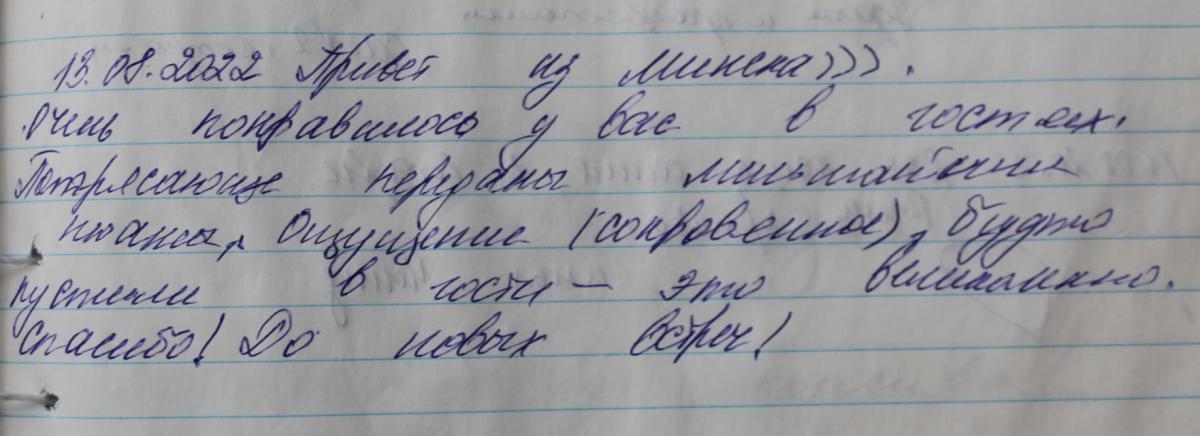 13.08.2022 Привет из Минска))).
Очень понравилось у вас в гостях.
Потрясающе переданы мельчайшие
нюансы, ощущение (сокровенное), будто
пустили в гости – это великолепно.
Спасибо! До новых встреч!